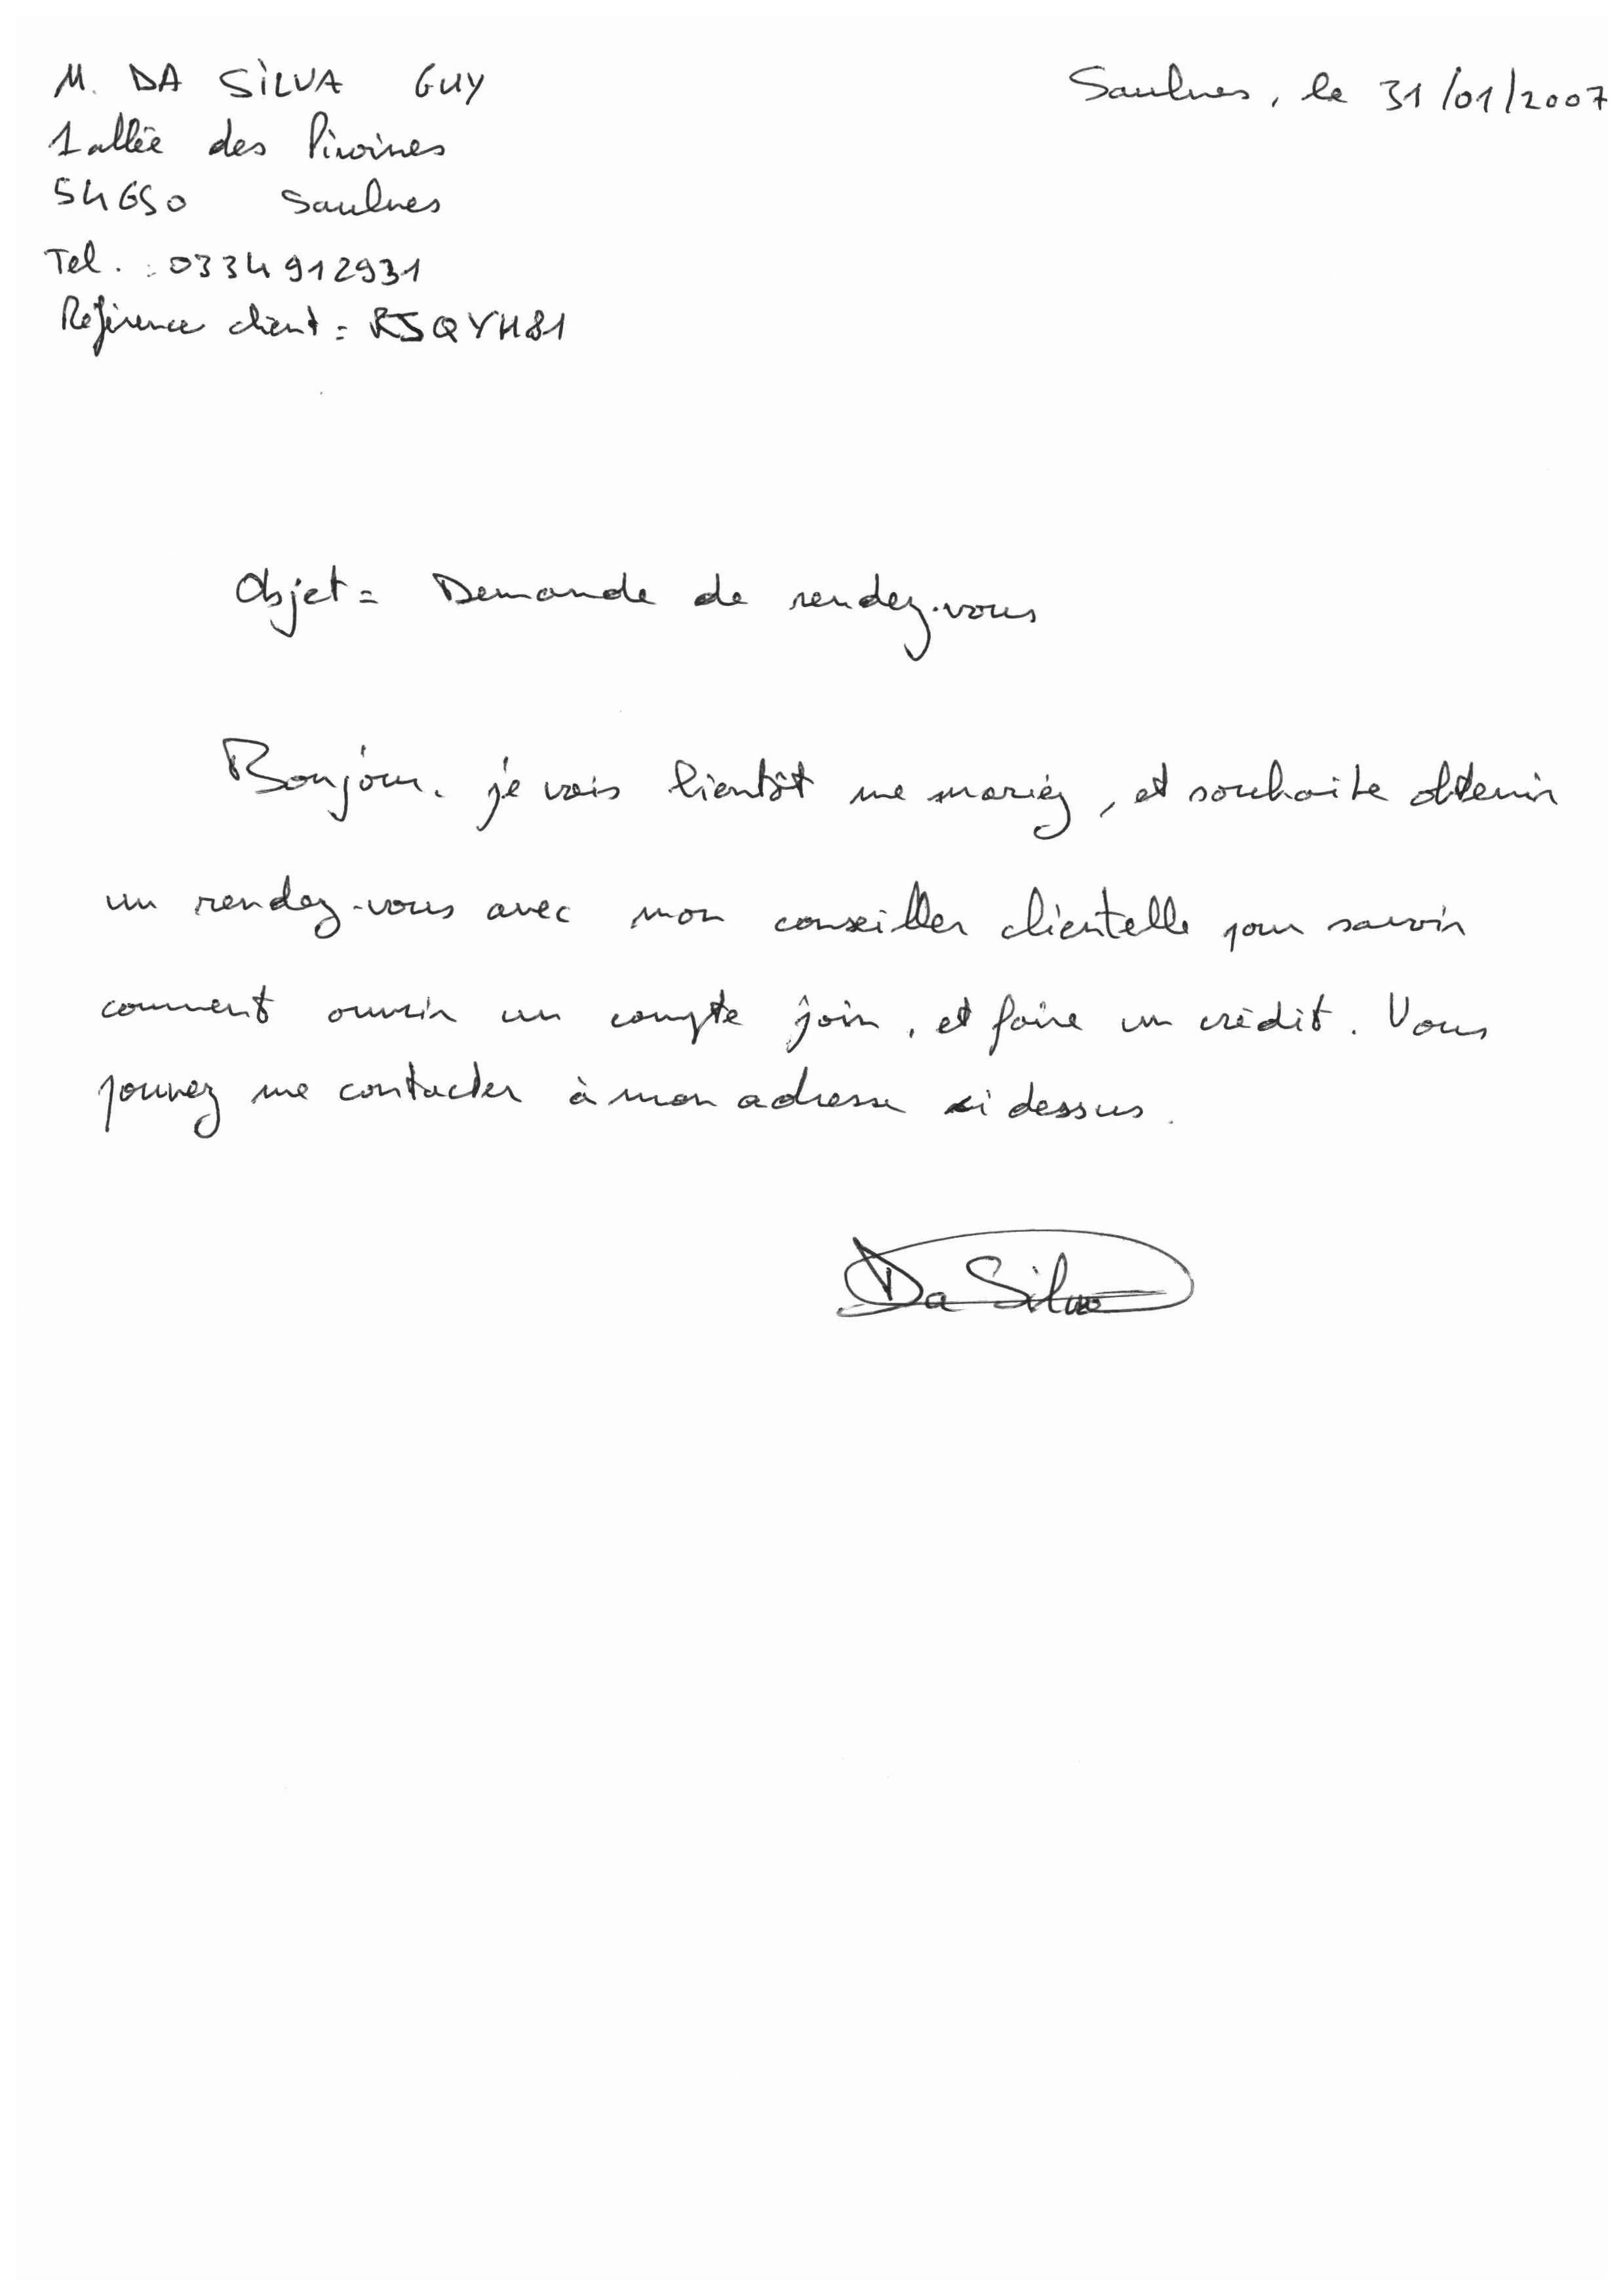 M. DA SILVA GUY
Saulnes, le 31/01/2007
1 allée des Pivoines
54650 Saulnes
Tel. : 0334912931
Référence client : RJQYH81
Objet : Demande de rendez-vous
Bonjour. je vais bientôt me mariéz, et souhaite obtenir
un rendez-vous avec mon conseiller clientelle pour savoir
comment ouvrir un compte join, et faire un crédit. Vous
pouvez me contacter à mon adresse ci dessus.
Da Silva